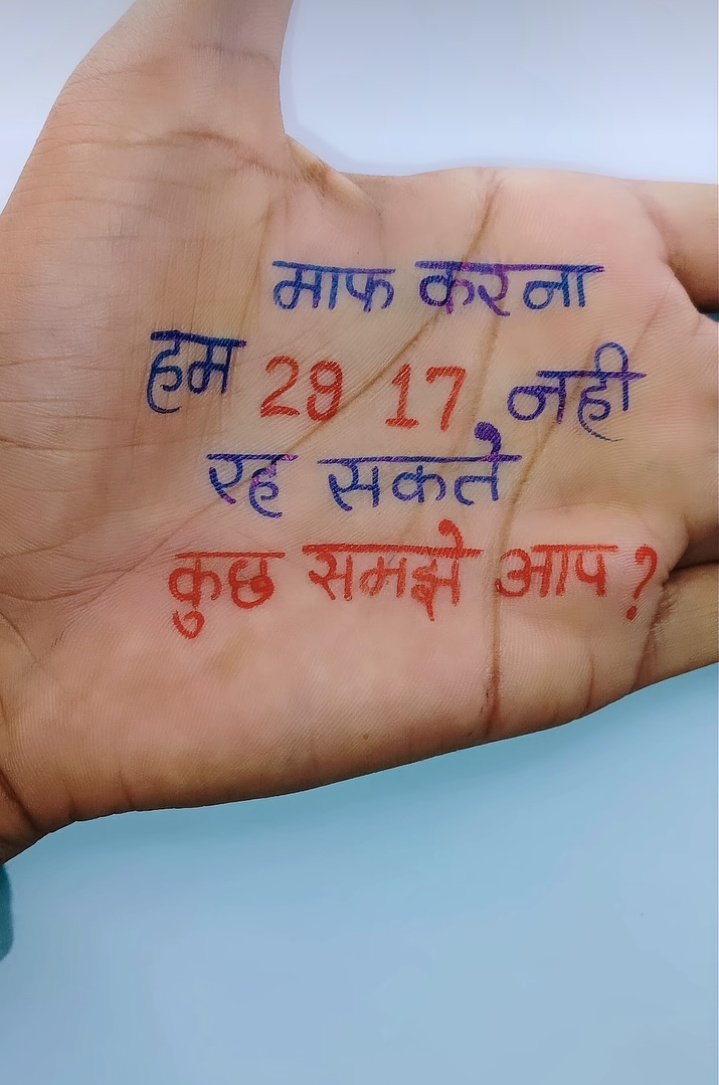 माफ करना
हम 29 17 नही
रह सकते
कुछ समझे आप?